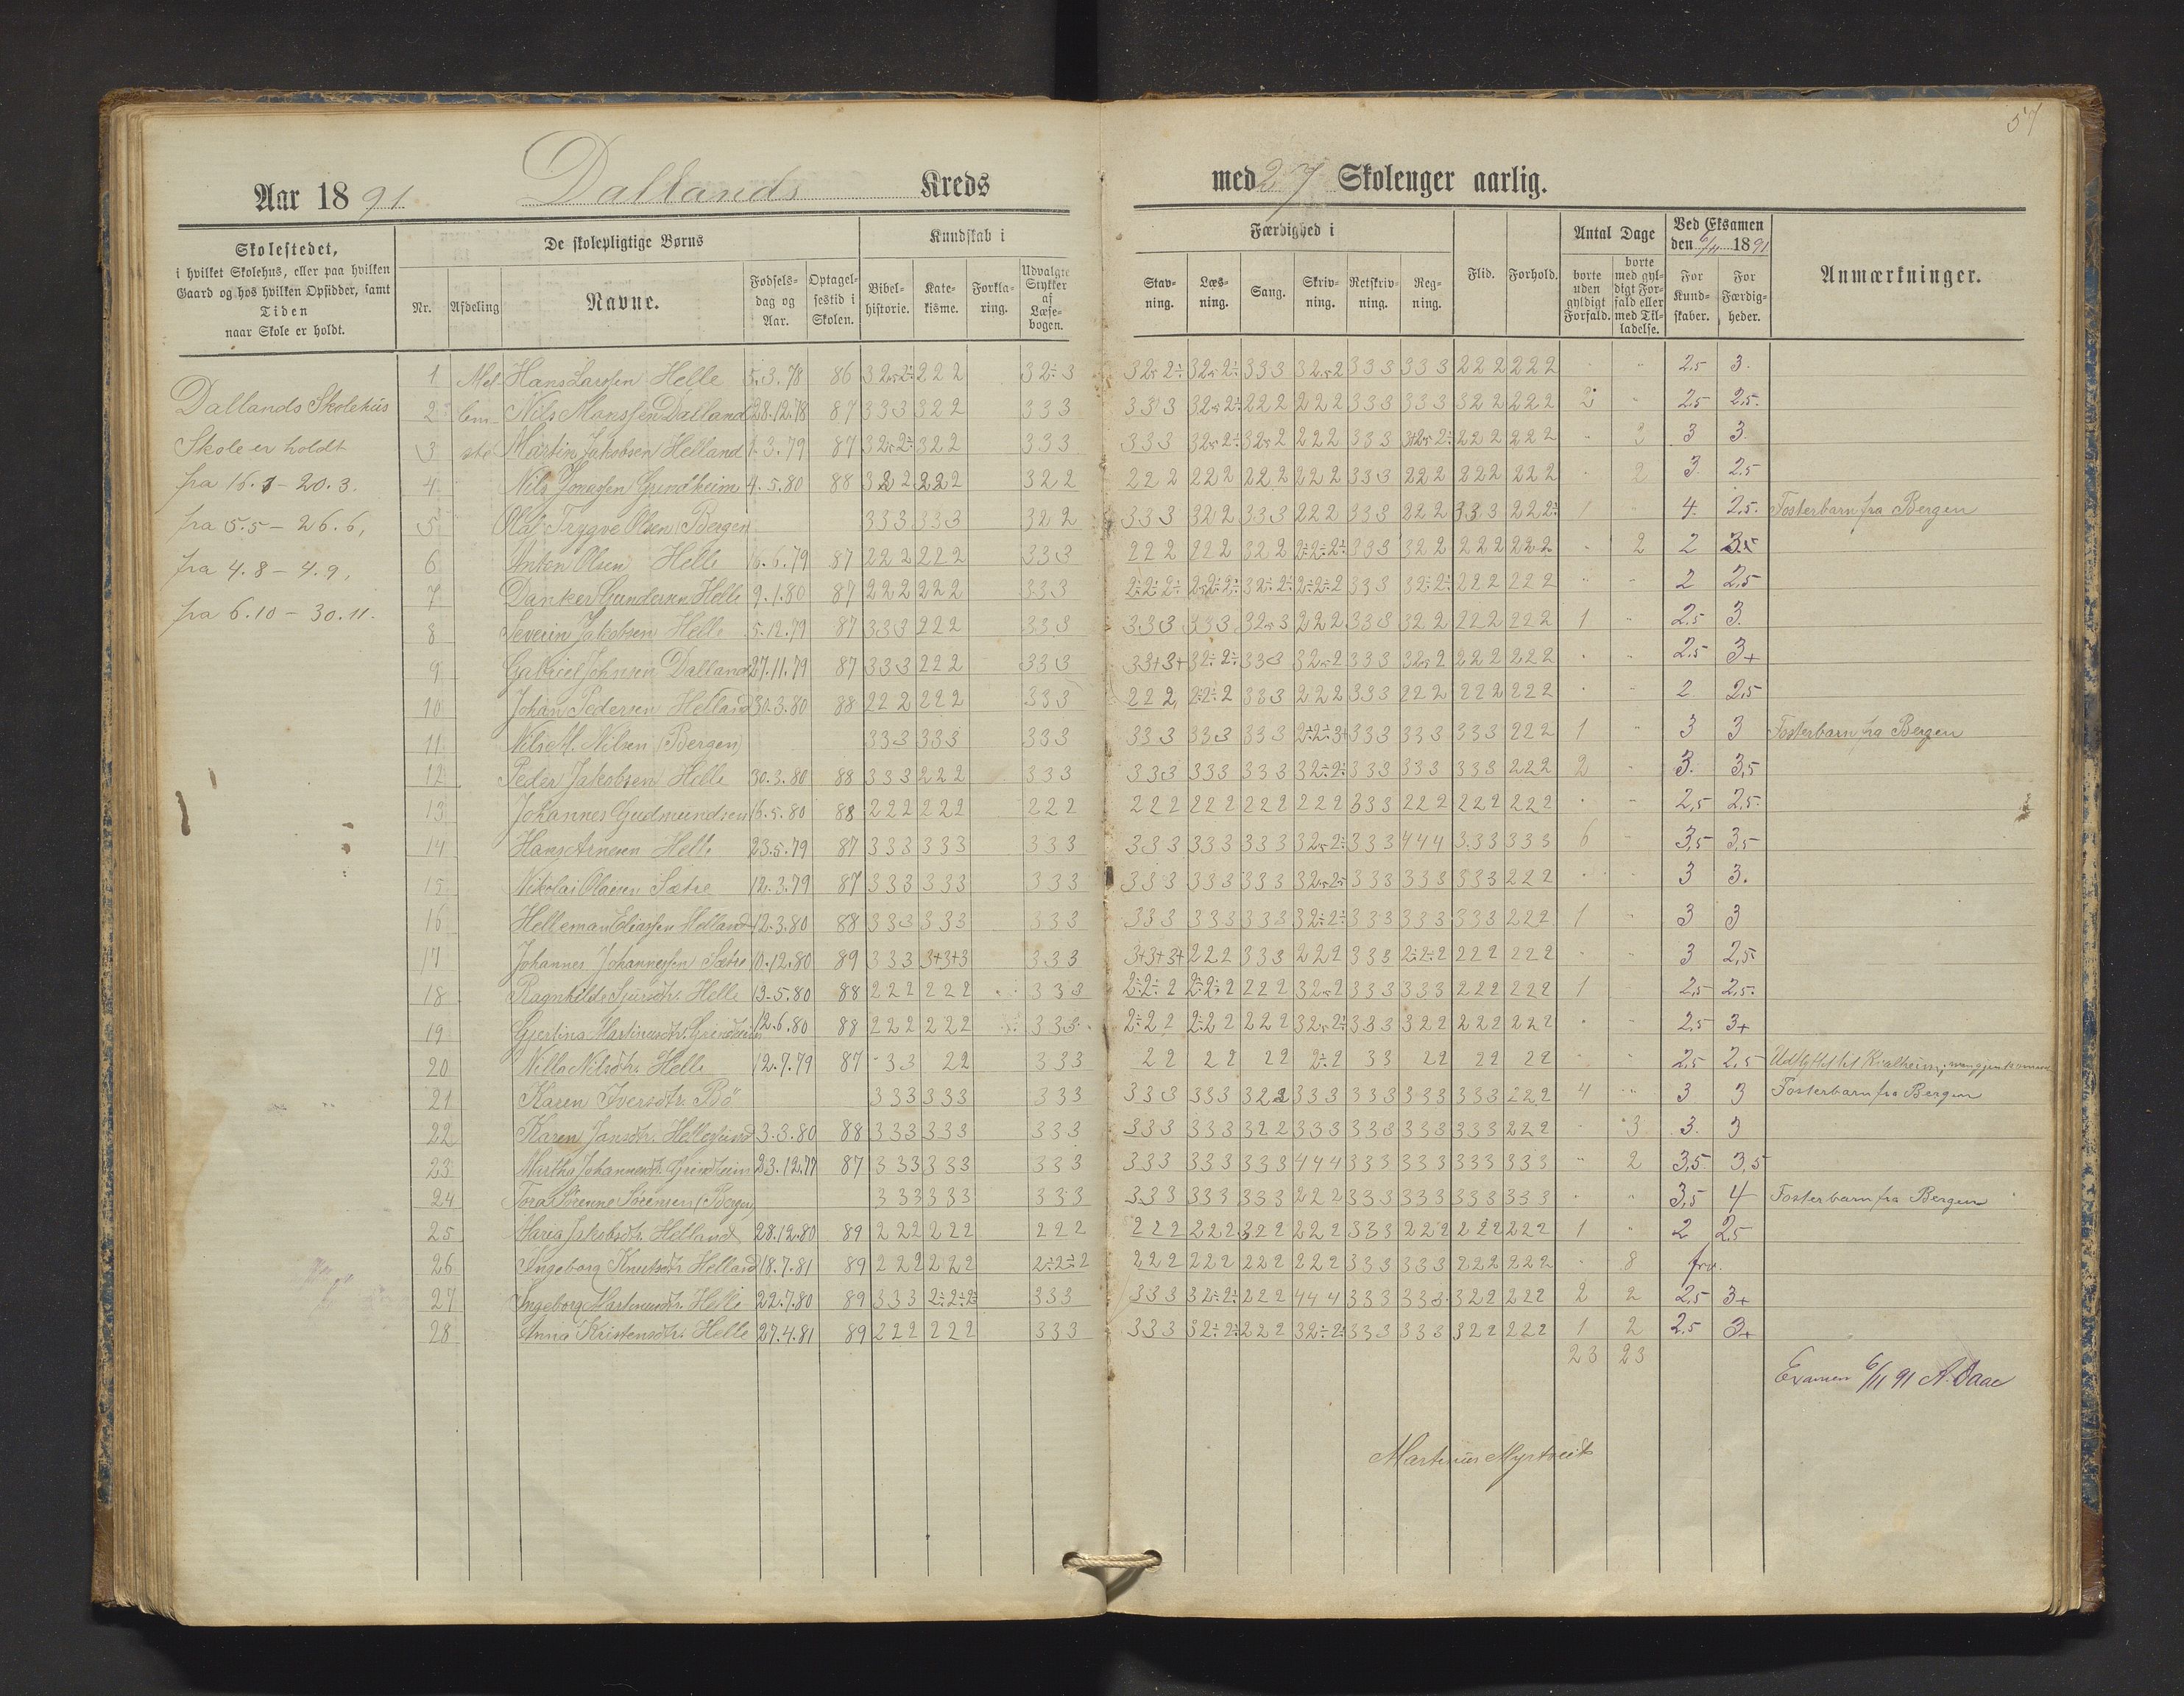 57
Aar 1891 Dallands Kreds med 27 Skolenger aarlig.
Skolestedet,
i hvilket Skolehus, eller paa hvilken
Gaard og hos hvilken Opsidder, samt
Tiden
naar Skole er holdt.
De skolepligtige Børns
Nr.
Afdeling
Navne.
Fødsels-
dag og
Aar.
Optagel-
sestid i
Skolen.
Kundskab i
Bibel-
historie.
Kate-
kisme.
Forkla-
ring.
Udvalgte
Stykker
af
Læse-
bogen.
Færdighed i
Stav-
ning.
Læs-
ning.
Sang.
Skriv-
ning.
Retskriv-
ning.
Reg-
ning.
Flid.
Forhold.
Antal Dage
borte
uden
gyldigt
Forfald.
borte
med gyl-
digt For-
fald eller
med Til-
ladelse.
Ved Eksamen
den 6/11 1891
For
Kund-
skaber.
For
Færdig-
heder.
Anmærkninger.
Dallands Skolehus
Skole er holdt
fra 16.3 - 20.3.
fra 5.5 - 26.6,
fra 4.8 - 4.9,
fra 6.10 - 30.11.
1 Mel Hans Larssen Helle 5.3.78 86 222 333 333 333 222 222 2,5 3.
2 lem Nils Monssen Dalland 28.12.78 87 333 322 333 333 222 222 333 333 322 222 2 2,5 2,5.
3 ste Martin Jakobsen Helland 1.3.79 87 322 333 333 222 333 222 222 3 3 3
4 Nils Jonassen Grindheim 4.5.80 88 322 222 322 222 222 222 222 333 222 222 222 2 3. 2,5
5 Olaf Trygve Olsen (Bergen 333 333 322 333 322 333 222 333 222 333 222 1 4. 2,5. Fosterbarn fra Bergen
6 Anton Olsen Helle 16.6.79 87 222 222 333 222 222 322 333 322 222 222 2 2
7 Danker Gundersen Helle 9.1.80 87 222 222 333 333 222 222 2 2,5
8 Severin Jakobsen Helle 5.12.79 87 333 222 333 333 333 222 333 322 222 222 1 2,5 3.
9 Gabriel Johnsen Dalland 27.11.79 87 333 222 333 333 333 222 222 2,5 3+
10 Johan Pedersen Helland 30.3.80 88 222 222 333 222 333 222 333 222 222 222 2 2,5
11 Nils M. Nilsen (Bergen) 333 333 333 333 333 333 333 333 333 222 1 3 3 Fosterbarn fra Bergen
12 Peder Jakobsen Helle 30.3.80 88 333 222 333 333 333 333 333 333 333 222 2 3. 3,5
13 Johannes Gudmundsen 16.5.80 88 222 222 222 222 222 222 222 333 222 222 222 2,5 2,5.
14 Hans Arnesen Helle 23.5.79 87 333 333 333 333 333 333 333 444 333 333 6 3,5 3,5
15 Nikolai Olaisen Sætre 12.3.79 87 333 333 333 333 333 333 333 333 333 222 3 3.
16 Helleman Eliassen Helland 12.3.80 88 333 333 333 333 333 333 333 333 333 222 1 3 3
17 Johannes Johannessen Sætre 10.12.80 89 333 3+3+3 333 3+3+3+ 222 333 222 333 222 222 3 2,5
18 Ragnhilde Sjursdtr. Helle 13.5.80 88 222 222 333 222 333 333 222 222 1 2,5 2,5.
19 Gjertina Martinusdtr. Grindheim 12.6.80 88 222 222 333 222 333 322 222 222 2,5 3+
20 Nilla Nilsdtr. Helle 12.7.79 87 33 22 333 22 22 22 2÷2 33 22 22 22 2,5 2,5 Udflyttet til Kvalheim,
21 Karen Iversdtr. Bö 333 333 333 333 333 322 333 333 333 333 222 4 3 3 Fosterbarn fra Bergen
22 Karen Jansdtr. Hellesund 3.3.80 88 333 333 333 333 333 322 333 333 333 333 222 3 3. 3
23 Martha Johannesdtr. Grindheim 23.12.77 87 333 333 333 333 333 333 444 333 333 333 333 2 3,5 3,5
24 Tora Sörenne Sörensen (Bergen) 333 333 333 333 333 333 222 333 333 333 333 3,5 4 Fosterbarn fra Bergen
25 Maria Jakobsdtr. Helland 28.12.80 89 222 222 222 222 222 322 222 333 222 222 222 1 2 2,5
26 Ingeborg Knutsdtr. Helland 18.7.81 89 222 222 2÷2÷2 222 222 222 222 333 333 222 222 8 frv.
27 Ingeborg Martinusdtr. Helle 22.7.80 89 333 2÷2÷2÷ 333 333 32÷2÷ 222 444 333 333 322 222 2 2 2,5 3+
28 Anna Kristensdtr. Helle 27.4.81 89 222 222 333 333 32÷2÷ 222 32÷2÷ 333 333 322 222 1 2 2,5 3+
23 23
Examen 6/11 91 A. Daae
Martinus Myrtveit